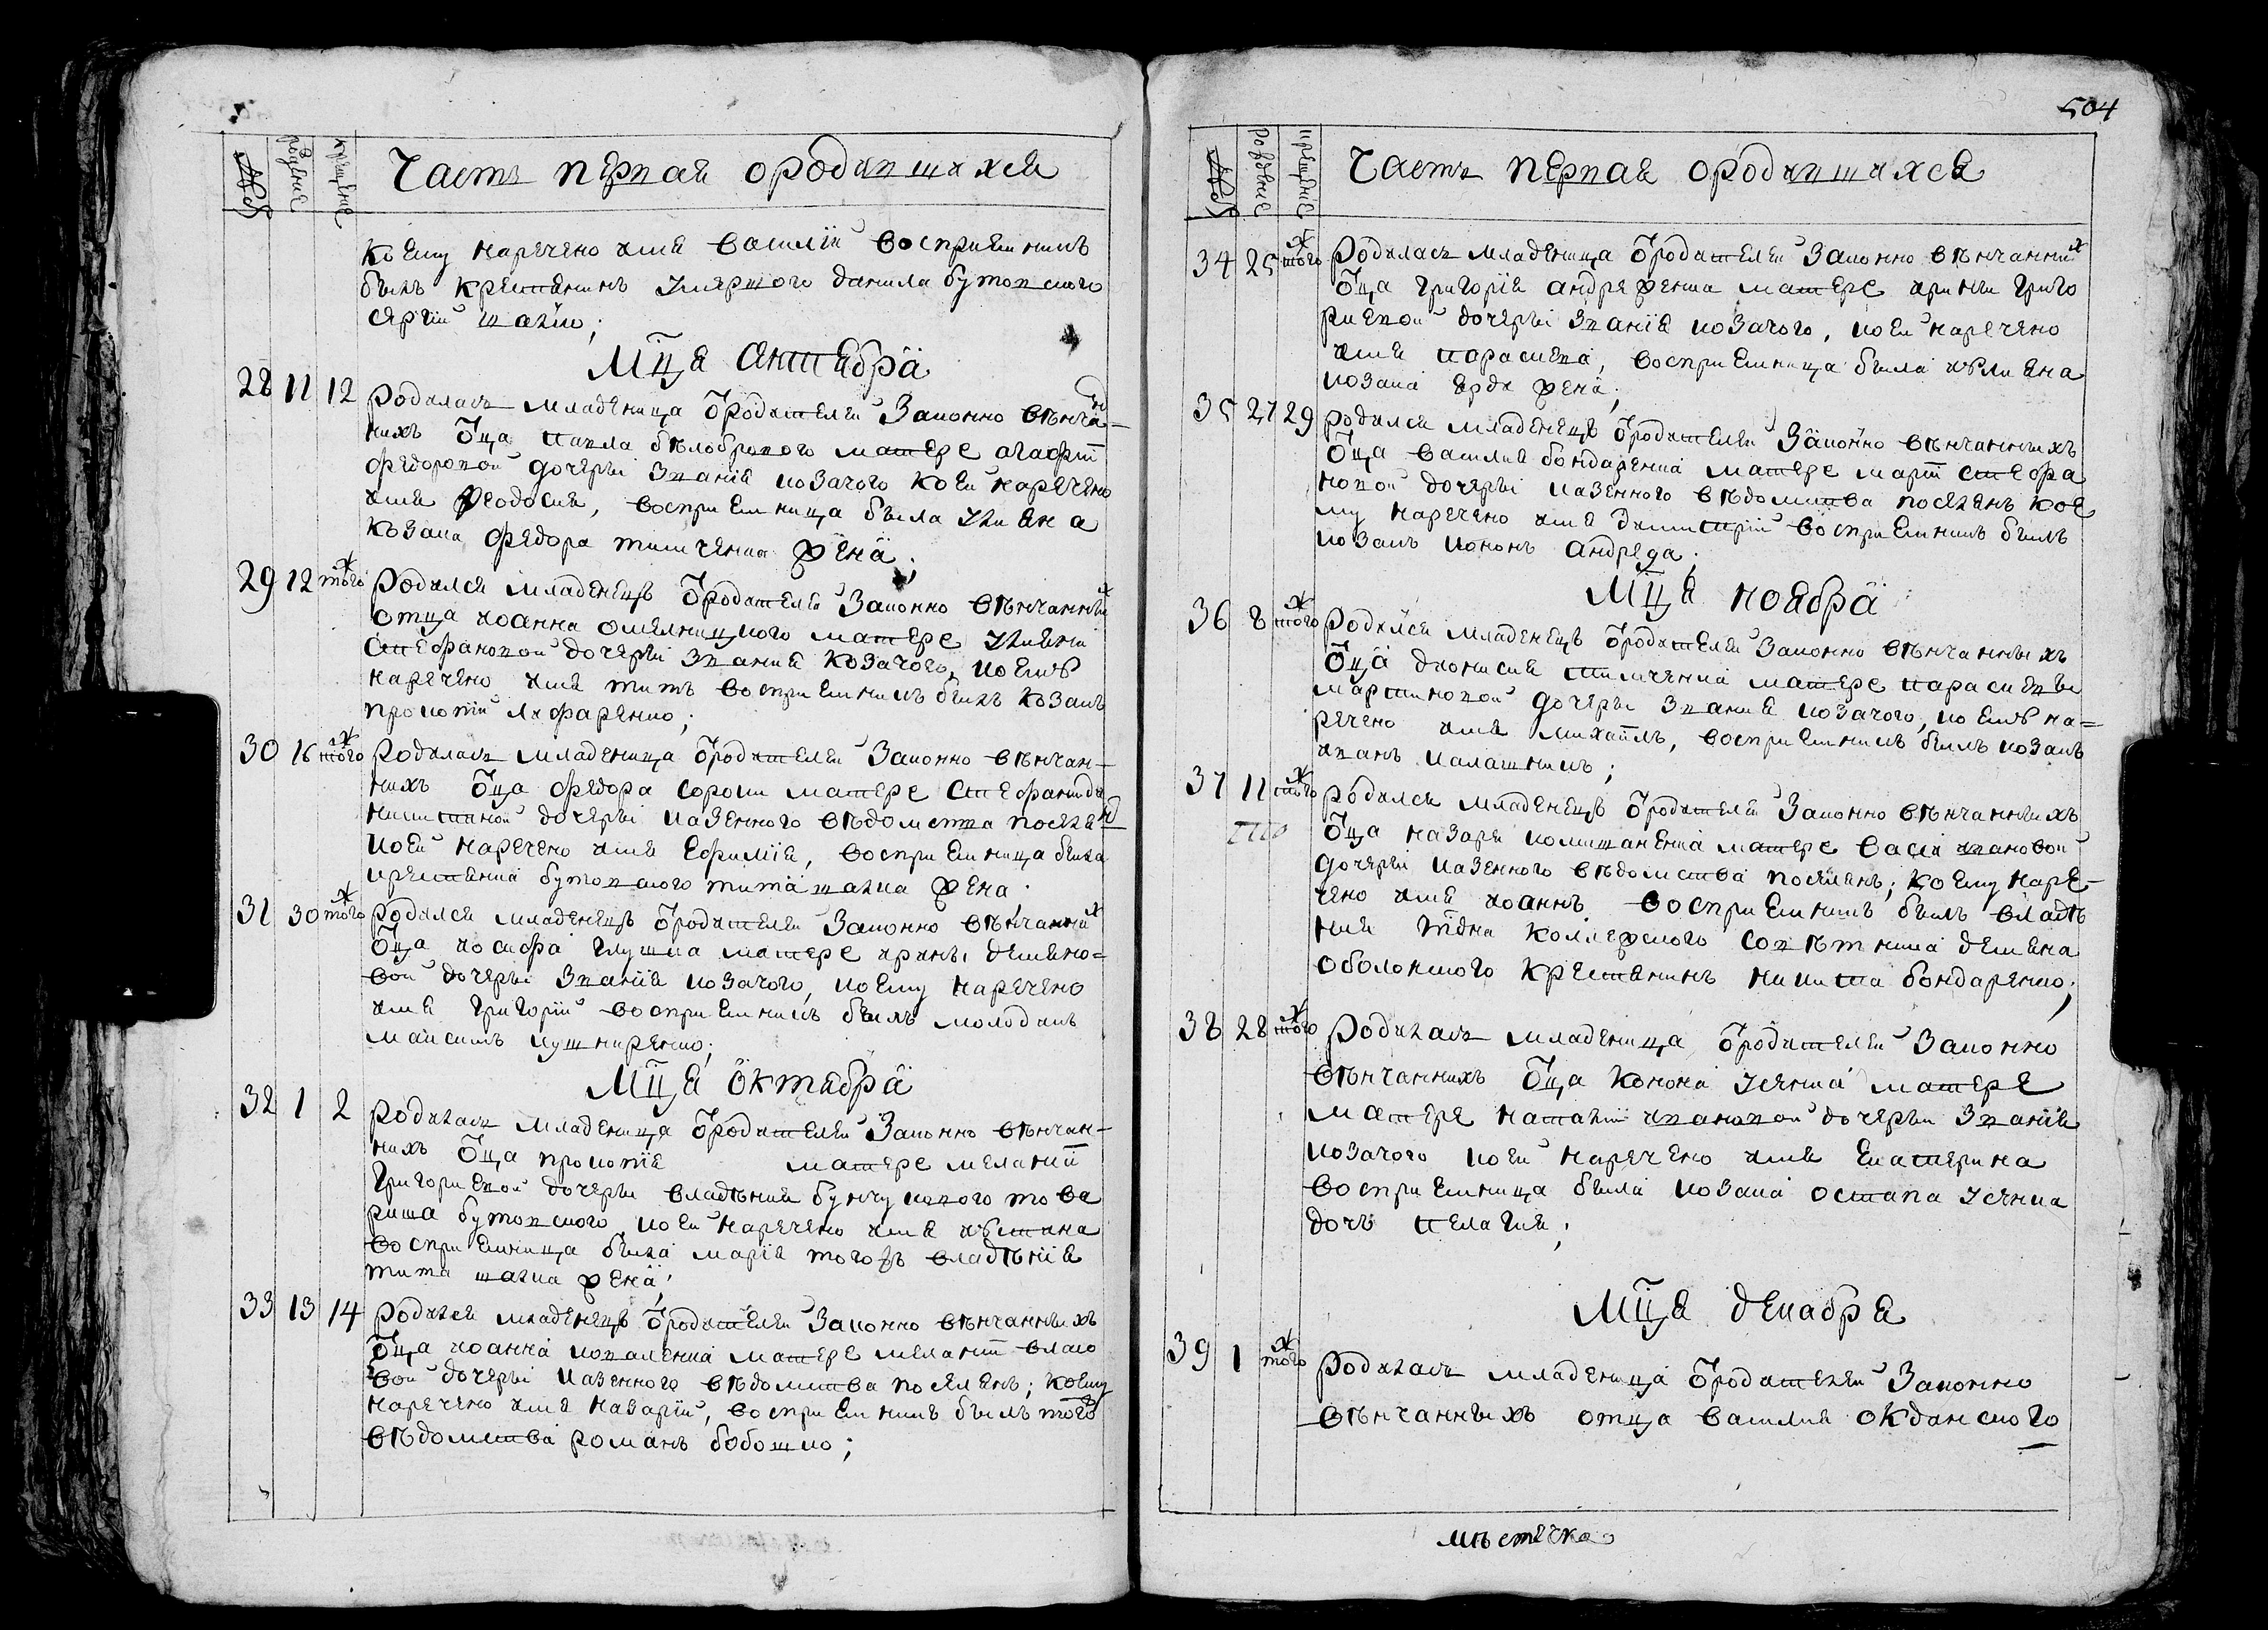 №№ рождение крещение Часть первая ородившихся
коему наречено имя василій восприемникъ
былъ крестянинъ умершого данила бутовского
сергій шалко;
Мц҃а сентября
28 11 12 родилась младеница ѿродителей законно вѣнчан-
нихъ ѿца павла бѣлоброваго матере агафіи
федоровой дочеры званія козачого коей наречено
имя феодосия, восприемница была улияна
козака федора тимченка жена;
29 12 того ж родился младенецъ ѿродителей законно вѣнчанных
отца иоанна омелницкого матере улияни
стефановой дочеры звания козачого, коему
наречено имя титъ восприемникъ былъ козакъ
прокопій лафаренко;
30 16 того ж родилась младеница ѿродителей законно вѣнчан-
нихъ ѿца федора сороки матере стефаниды
никитиной дочеры казенного вѣдомства поселян
коей наречено имя ефимія, восприемница была
крестянка бутовского тита шалка жена;
31 30 того ж родился младенецъ ѿродителей законно вѣнчанных
ѿца иосифа глушка матере ирины демяно=
вой дочеры званія козачого, коему наречено
имя григорій восприемникъ былъ молодикъ
максимъ кушниренко;
Мц҃а октября
32 1 2 родилась младеница ѿродителей законно вѣнчан-
нихъ ѿца прокопія матере меланіи
григориевой дочеры владѣния бунчукового това
риша бутовского, коей наречено имя иустина
восприемница была марія тогожъ владѣнія
тита шалка жена;
33 13 14 родился младенецъ ѿродителей законно вѣнчанныхъ
ѿца иоанна коваленка матере меланіи власо
вой дочеры казенного вѣдомства поселянъ; коему
наречено имя назарій, восприемникъ былъ того
вѣдомства романъ бобошко;
504
№№ рождение крещение Часть первая ородившихся
34 25 того ж родилась младеница ѿродителей законно вѣнчанних
ѿца григорія андреженка матере ирины григо
риевой дочеры званія козачого, коей наречено
имя параскева, восприемница была иулияна
козака жена;
35 27 29 родился младенецъ ѿродителей законно вѣнчанныхъ
ѿца василия бондаренка матере марѳи стефа
новой дочеры казенного вѣдомства поселянъ кое
му наречено имя димитрій восприемникъ былъ
козакъ кононъ андреда;
Мц҃а ноября
36 8 того ж родился младенецъ ѿродителей законно вѣнчанныхъ
ѿца дионисия тимченка матере параскевы
мартиновой дочеры звания козачого, коему на=
речено имя михаилъ, восприемникъ былъ козакъ
иванъ калашникъ;
37 11 того ж родился младенецъ ѿродителей законно вѣнчанныхъ
ѿца назаря матере васси ивановой
дочеры казенного вѣдомства поселянъ; коему наре-
чено имя иоаннъ восприемникъ былъ владѣ
ния гдна коллежского совѣтника демяна
оболонского крестянинъ никита бондаренко;
38 28 того ж родилась младеница ѿродителей законно
вѣнчаннихъ ѿца конона усенка матере
матере наталии ивановой дочеры званія
козачого коей наречено имя екатерина
восприемница была козака остапа усенка
дочъ пелагия;
Мц҃а декабря
39 1 того ж родилась младеница ѿродителей законно
вѣнчанныхъ отца василия окданского
мѣстечка